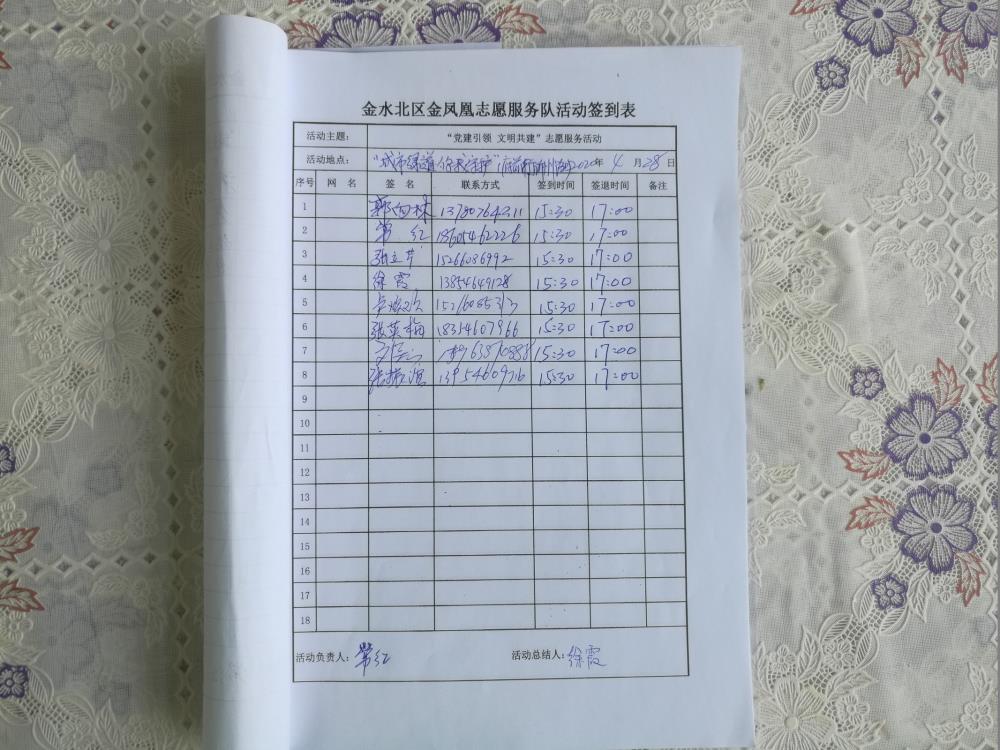 金水北区金凤凰志愿服务队活动签到表
活动主题： “党建引领 文明共建”志愿服务活动
活动地点： “城市绿道 你我守护” 2020年 4 月 28 日
序号 网 名 签 名 联系方式 签到时间 签退时间 备注
1 郭向林 13780764211 15:30 17:00
2 常 红 18605462226 15:30 17:00
3 张立芹 15266086992 15:30 17:00
4 徐霞 13854649128 15:30 17:00
5 15:30 17:00
6 张英梅 18354607966 15:30 17:00
7 15:30 17:00
8 15:30 17:00
9
10
11
12
13
14
15
16
17
18
活动负责人：常红 活动总结人：徐霞